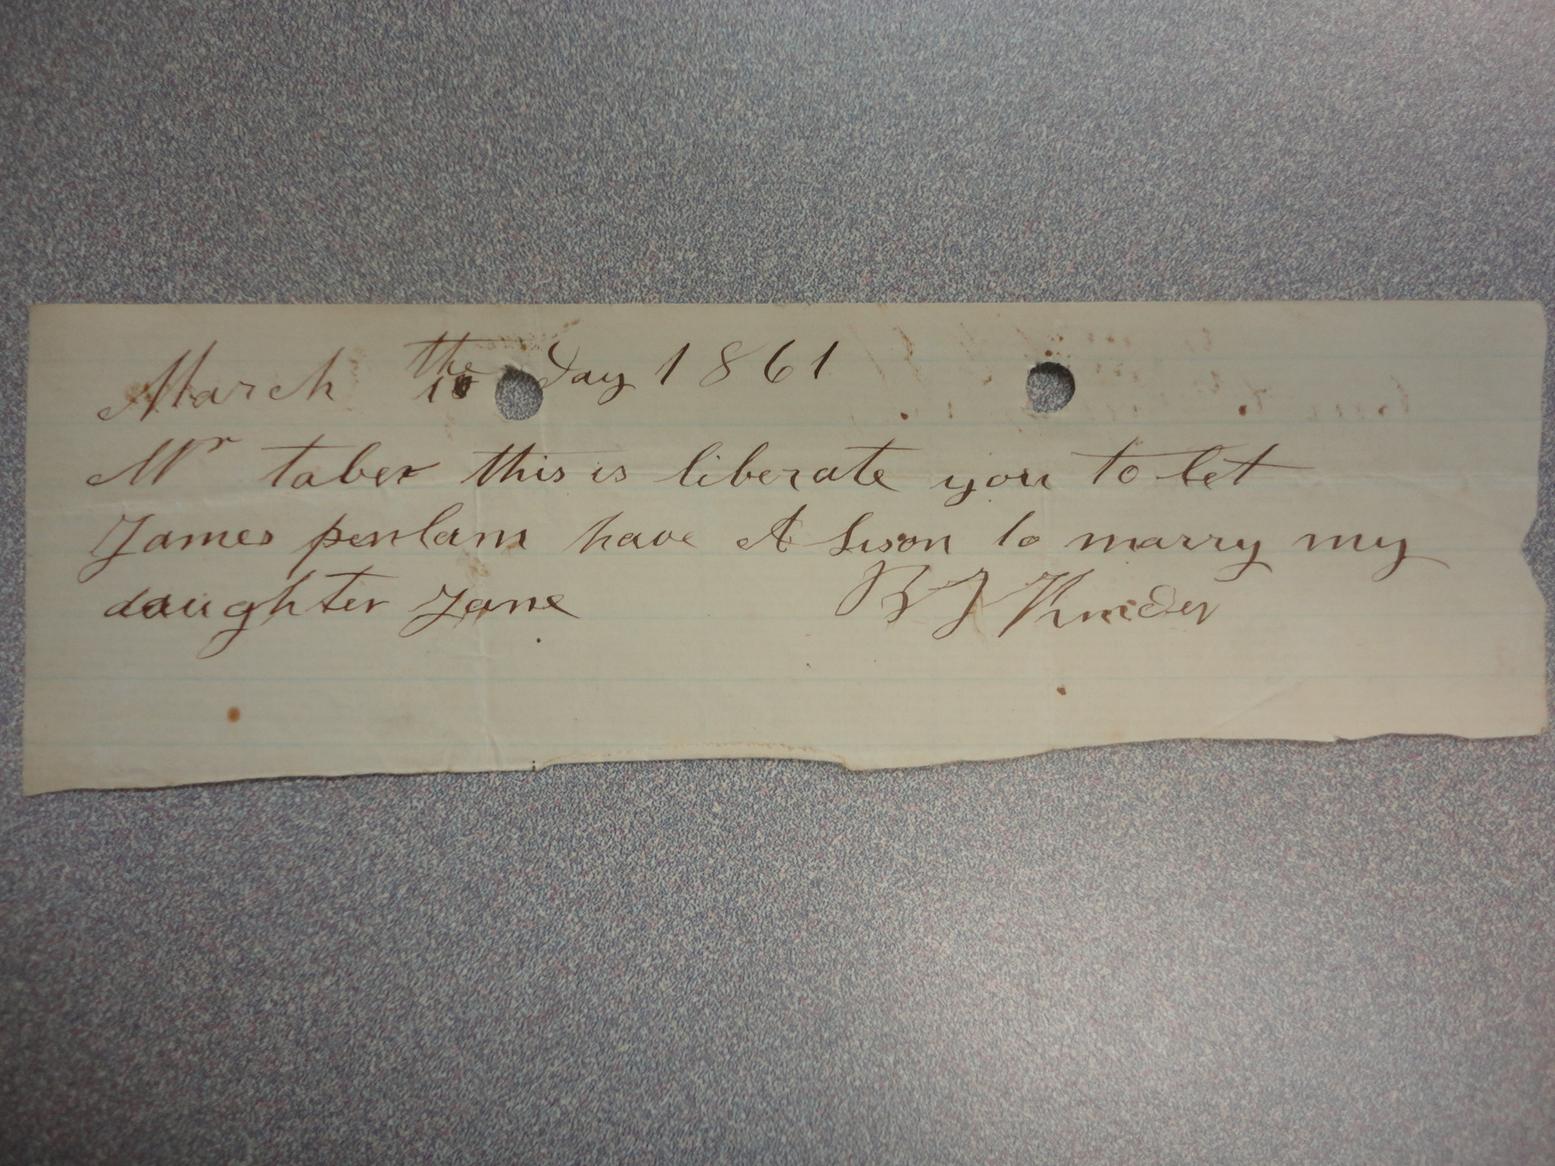 March the 10 day 1861
Mr taber this is liberate you to let
James penlam have A Lison to marry my
daughter Jane B J Kreider